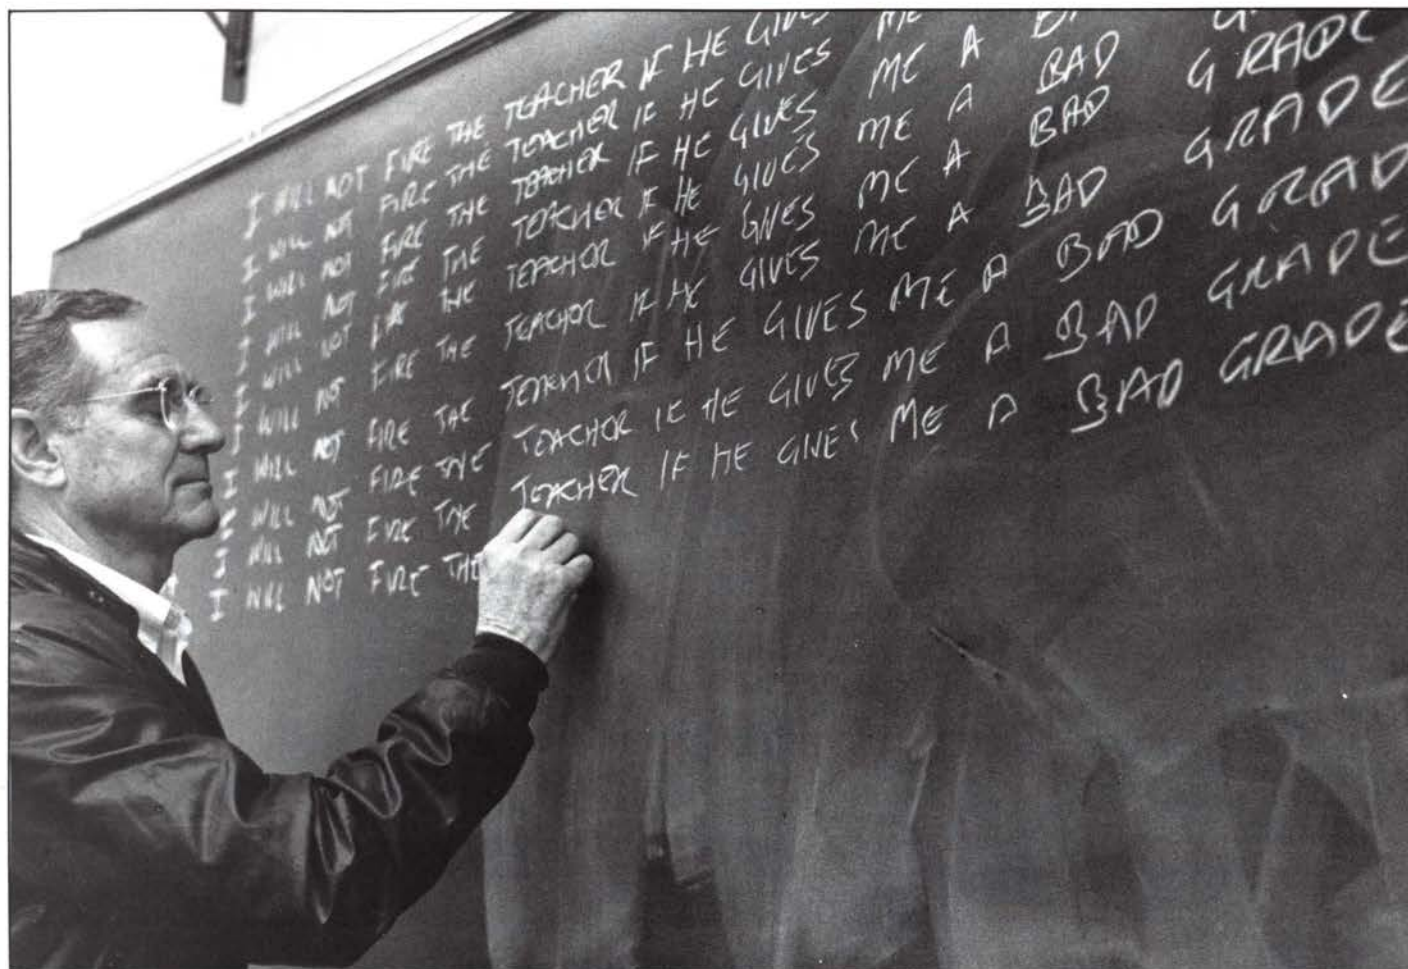 I WILL NOT FIRE THE TEACHER IF HE GIVES
I WILL NOT FIRE THE TEACHER IF HE GIVES ME
I WILL NOT FIRE THE TEACHER IF HE GIVES ME A
I WILL NOT FIRE THE TEACHER IF HE GIVES ME A BAD
I WILL NOT THE TEACHER IF HE GIVES ME A BAD GRADE
I WILL NOT FIRE THE TEACHER IF HE GIVES ME A BAD GRADE
I WILL NOT FIRE THE TEACHER IF HE GIVES ME A BAD GRAD
I WILL NOT FIRE THE TEACHER IF HE GIVES ME A BAD GRADE
I WILL NOT FIRE THE TEACHER IF HE GIVES ME A BAD GRADE
I WILL NOT FIRE THE